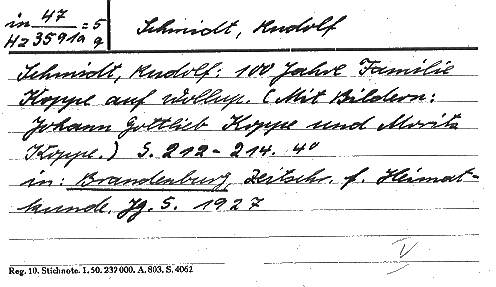 in 47 = 5
Hz 3591a 9
Schmidt, Rudolf
Schmidt, Rudolf: 100 Jahre Familie
Koppe auf Wollup. (Mit Bildern:
Johann Gottlieb Koppe und Moritz
Koppe.) S. 212-214. 4°
in: Brandenburg, Zeitschr. f. Heimat-
kunde. Jg. 5. 1927
V
Reg. 10. Stichnote. 1. 50. 237000. A. 803. S. 4062